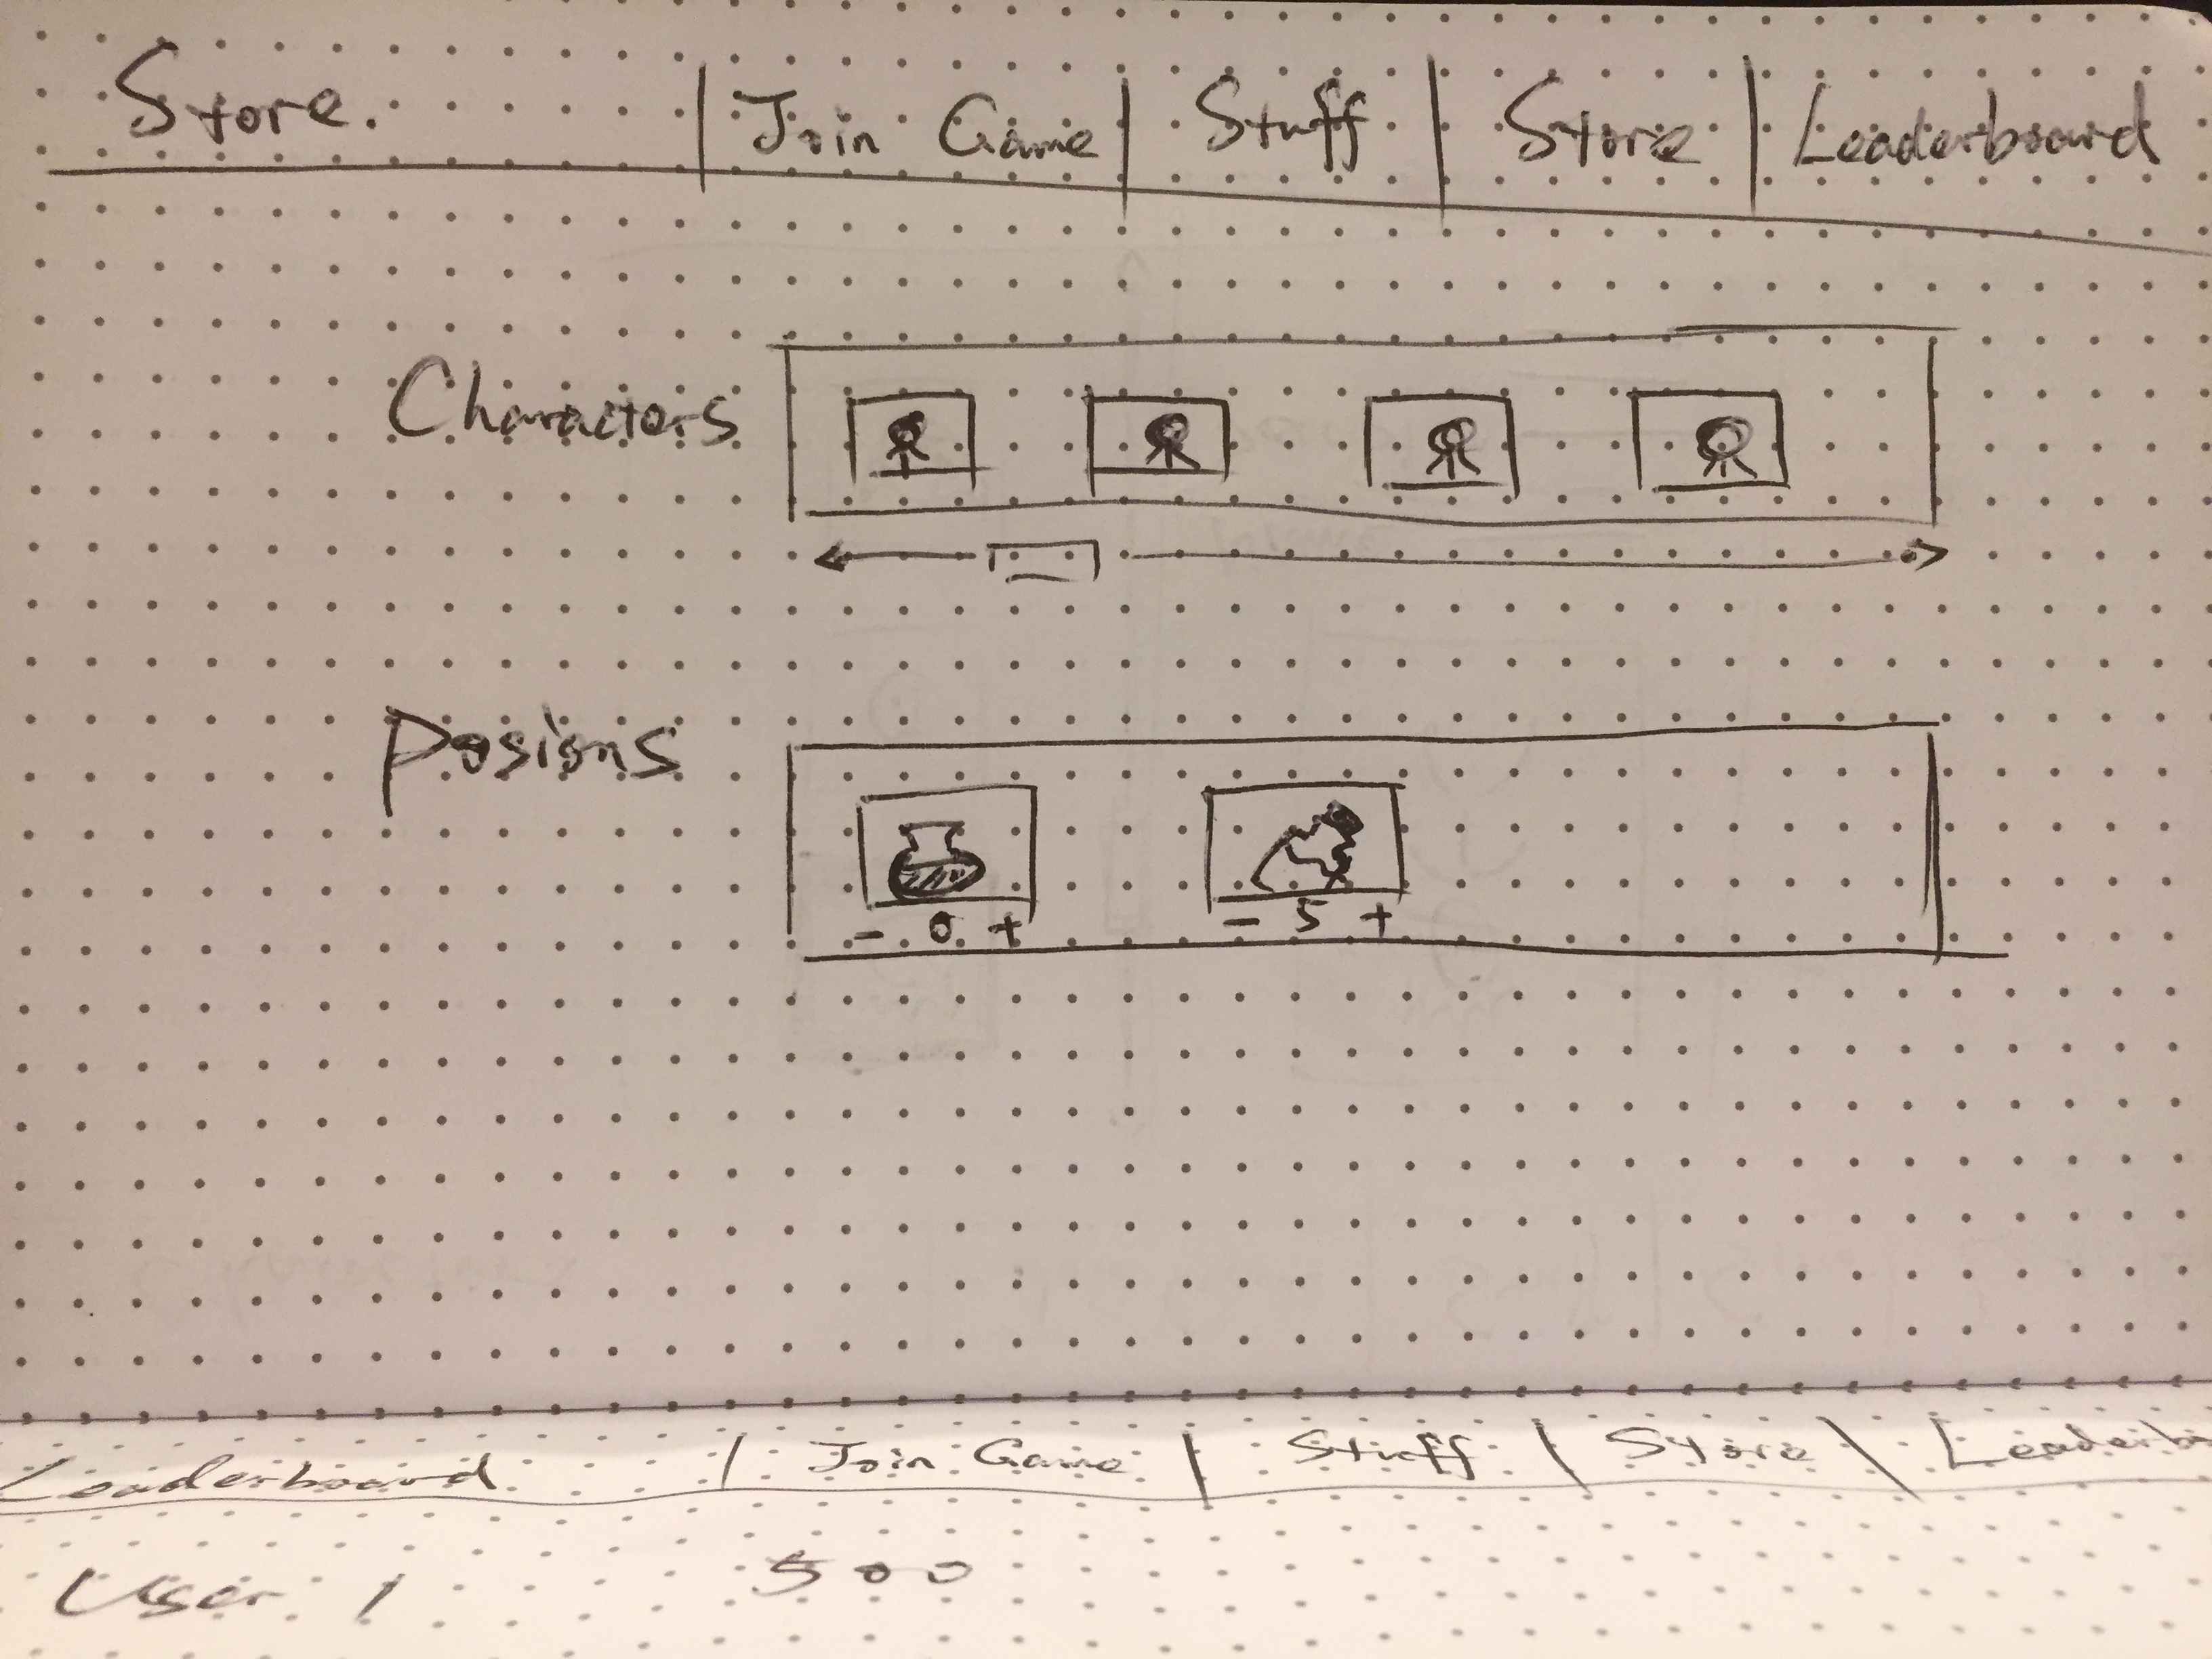 Store. | Join Game | Stuff | Store | Leaderboard
Charactors
Posions
- 0 + - 5 +
Leaderboard | Join Game | Stuff | Store \ Leaderbo
User 1 500